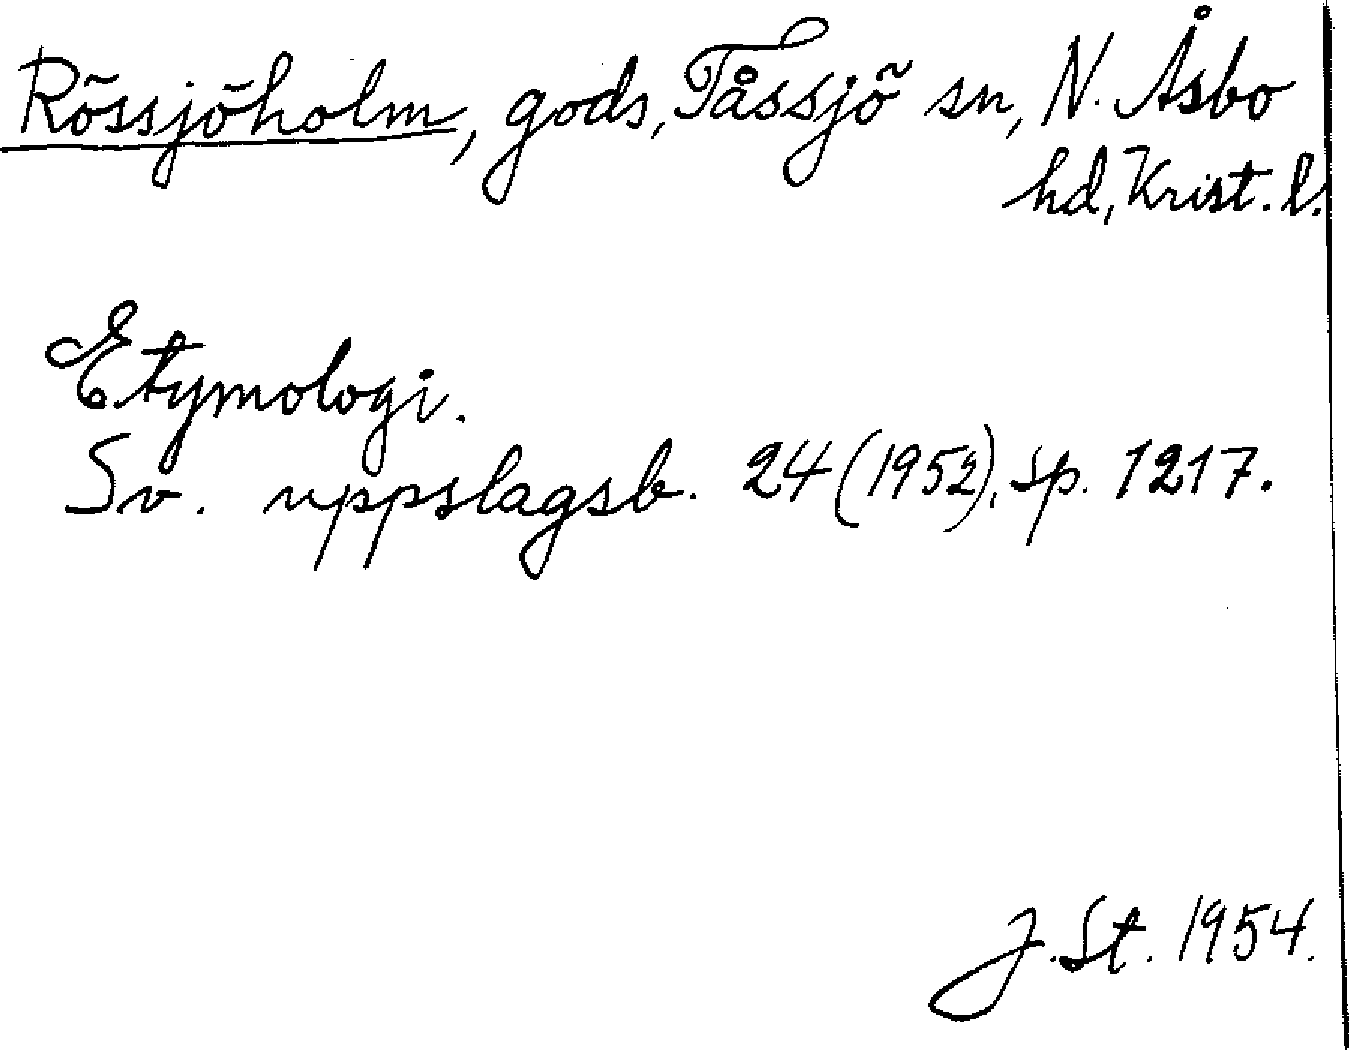 Rössjöholm, gods, Tåssjö sn, N. Åsbo
hd, Krist. l.
Etymologi.
Sv. uppslagsb. 24 (1952), sp. 1217.
J. St. 1954.